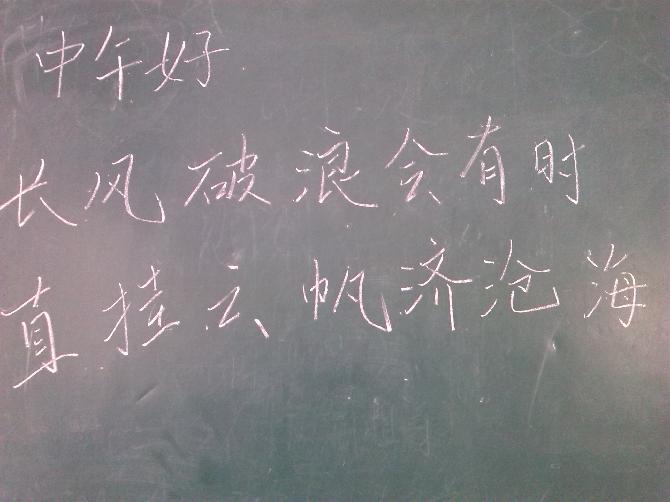 中午好
长风破浪会有时
直挂云帆济沧海